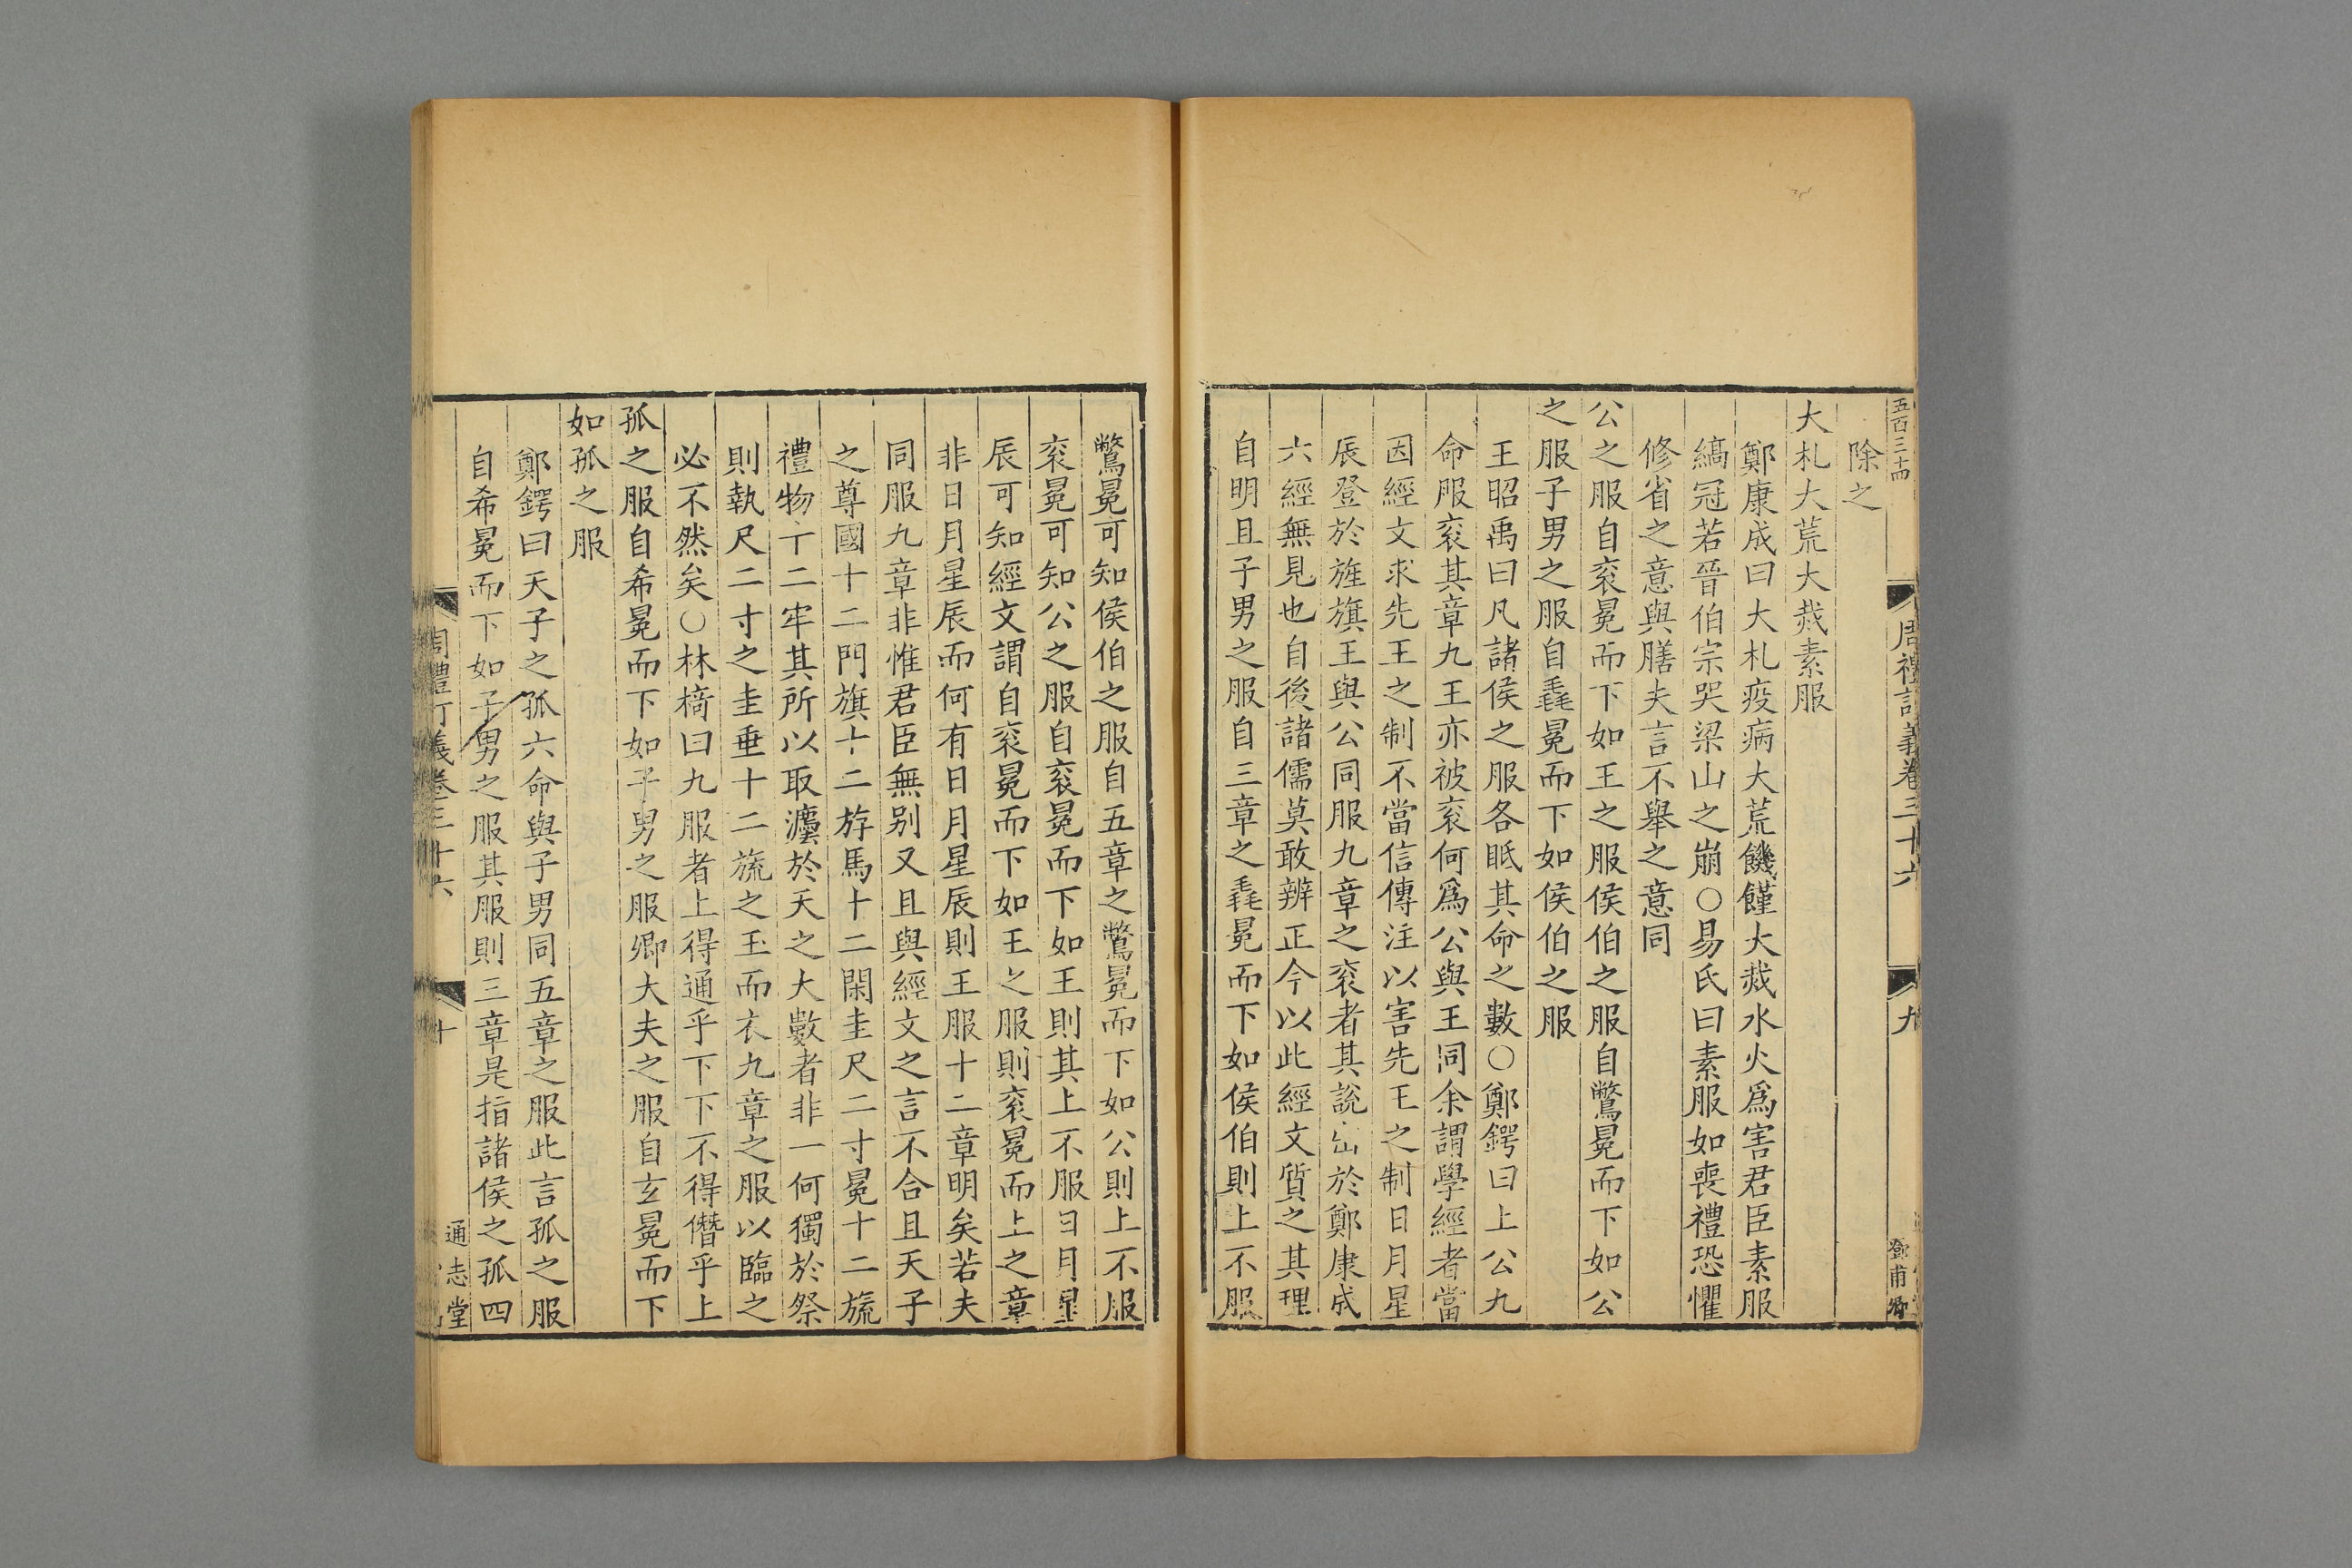 五百三十四
周禮訂義卷三十六
九
鄧甫卿
除之
大札大荒大烖素服
鄭康成曰大札疫病大荒饑饉大烖水火爲害君臣素服
縞冠若晉伯宗哭梁山之崩○易氏曰素服如喪禮恐懼
修省之意與膳夫言不舉之意同
公之服自衮冕而下如王之服侯伯之服自鷩冕而下如公
之服子男之服自毳冕而下如侯伯之服
王昭禹曰凡諸侯之服各眡其命之數○鄭鍔曰上公九
命服衮其章九王亦被衮何爲公與王同余謂學經者當
因經文求先王之制不當信傳注以害先王之制日月星
辰登於旌旗王與公同服九章之衮者其說出於鄭康成
六經無見也自後諸儒莫敢辨正今以此經文質之其理
自明且子男之服自三章之毳冕而下如侯伯則上不服
鷩冕可知侯伯之服自五章之鷩冕而下如公則上不服
衮冕可知公之服自衮冕而下如王則其上不服日月星
辰可知經文謂自衮冕而下如王之服則衮冕而上之章
非日月星辰而何有日月星辰則王服十二章明矣若夫
同服九章非惟君臣無别又且與經文之言不合且天子
之尊國十二門旗十二斿馬十二閑圭尺二寸冕十二旒
禮物十二牢其所以取灋於天之大數者非一何獨於祭
則執尺二寸之圭垂十二旒之玉而衣九章之服以臨之
必不然矣○林樀曰九服者上得通乎下下不得僭乎上
孤之服自希冕而下如子男之服卿大夫之服自玄冕而下
如孤之服
鄭鍔曰天子之孤六命與子男同五章之服此言孤之服
自希冕而下如子男之服其服則三章是指諸侯之孤四
周禮訂義卷三十六
十
通志堂